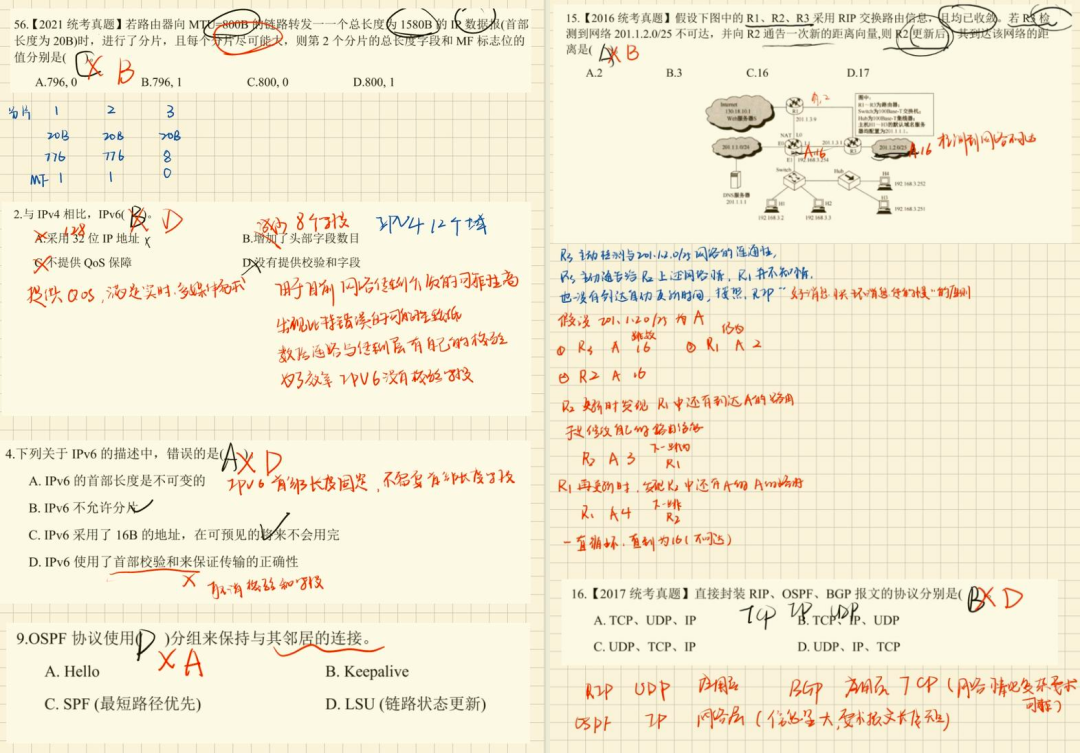 56.【2021 统考真题】若路由器向 MTU=800B 的链路转发一一个总长度为 1580B 的 IP 数据报(首部
长度为 20B)时，进行了分片，且每个分片尽可能大，则第 2 个分片的总长度字段和 MF 标志位的
值分别是( ) B
A.796, 0 B.796, 1 C.800, 0 D.800, 1
分片 1 2 3
20B 20B 20B
776 776 8
MF 1 1 0
2.与 IPv4 相比，IPv6( B )。 D
128 减少 8个字段 IPV4 12个域
A.采用 32 位 IP 地址 B.增加了头部字段数目
C.不提供 QoS 保障 D.没有提供校验和字段
提供QoS，满足实时.多媒体需求 用于目前网络传输介质的可靠性高
出现比特错误的可能性较低
数据链路与传输层有自己的校验
为了效率 IPV6没有校验字段
4.下列关于 IPv6 的描述中，错误的是( A ) D
A. IPv6 的首部长度是不可变的 IPV6首部长度固定，不需要首部长度字段
B. IPv6 不允许分片
C. IPv6 采用了 16B 的地址，在可预见的将来不会用完
D. IPv6 使用了首部校验和来保证传输的正确性
取消校验和字段
9.OSPF 协议使用( D )分组来保持与其邻居的连接。
A
A. Hello B. Keepalive
C. SPF (最短路径优先) D. LSU (链路状态更新)
15.【2016 统考真题】假设下图中的 R1、R2、R3 采用 RIP 交换路由信息，且均已收敛。若 R3 检
测到网络 201.1.2.0/25 不可达，并向 R2 通告一次新的距离向量,则 R2 更新后，其到达该网络的距
离是( ) B
A.2 B.3 C.16 D.17
Internet
130.18.10.1
Web服务器
R1
A.2
201.1.3.9
图中:
R1—R3为路由器;
Switch为100Base-T交换机;
Hub为100Base-T集线器;
主机H1—H3的默认域名服务
器均配置为201.1.1.1。
NAT L0
201.1.1.0/24 E0 R2 201.1.3.1 R3 201.1.2.0/25
A.16 A 16 检测到网络不可达
E1 192.168.3.254
Switch Hub
DNS服务器
201.1.1.1
H4
192.168.3.252
H1 H2 H3
192.168.3.2 192.168.3.3 192.168.3.251
R3主动检测与201.1.2.0/25网络的连通性，
R3主动通告给R2上述网络情，R1并不知情，
也没有到达自动更新时间，按照RIP“好消息快坏消息传的慢”的原则
假设 201.1.2.0/25 为 A
跳数
① R3 A 16 ② R1 A 2
③ R2 A 16
R2更新时发现R1中还有到达A的路由
于是修改自己的路由设备
R2 A 3 下一跳 R1
R1再更新时，发现R2中还有A的路由
R1 A 4 下一跳 R2
一直循环.直到为16(不可达)
16.【2017 统考真题】直接封装 RIP、OSPF、BGP 报文的协议分别是( B ) D
TCP IP UDP
A. TCP、UDP、IP B. TCP、IP、UDP
C. UDP、TCP、IP D. UDP、IP、TCP
RIP UDP 应用层 BGP 应用层 TCP (网络情况复杂要求
可靠)
OSPF IP 网络层 (信息量大,要求报文长度短)